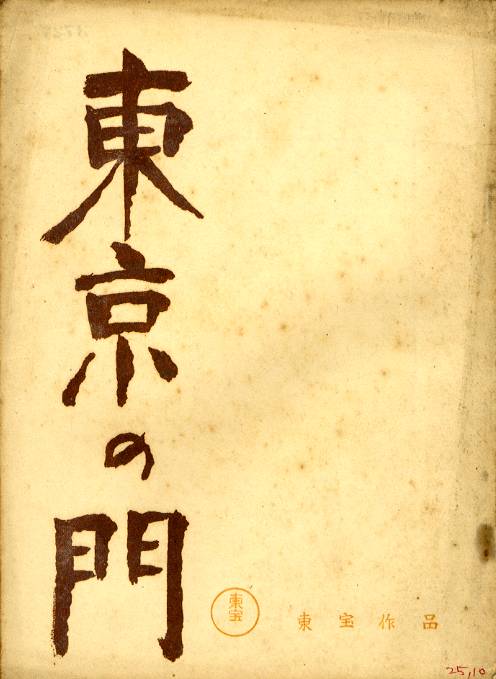 東京の門
東宝
東宝作品
25,10